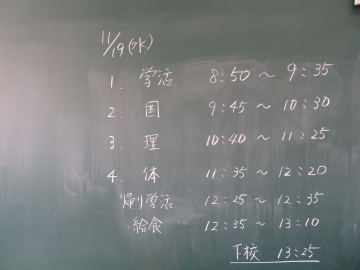 11/19(水)
1. 学活 8:50 〜 9:35
2. 国 9:45 〜 10:30
3. 理 10:40 〜 11:25
4. 体 11:35 〜 12:20
帰り学活 12:25 〜 12:35
給食 12:35 〜 13:10
下校 13:25